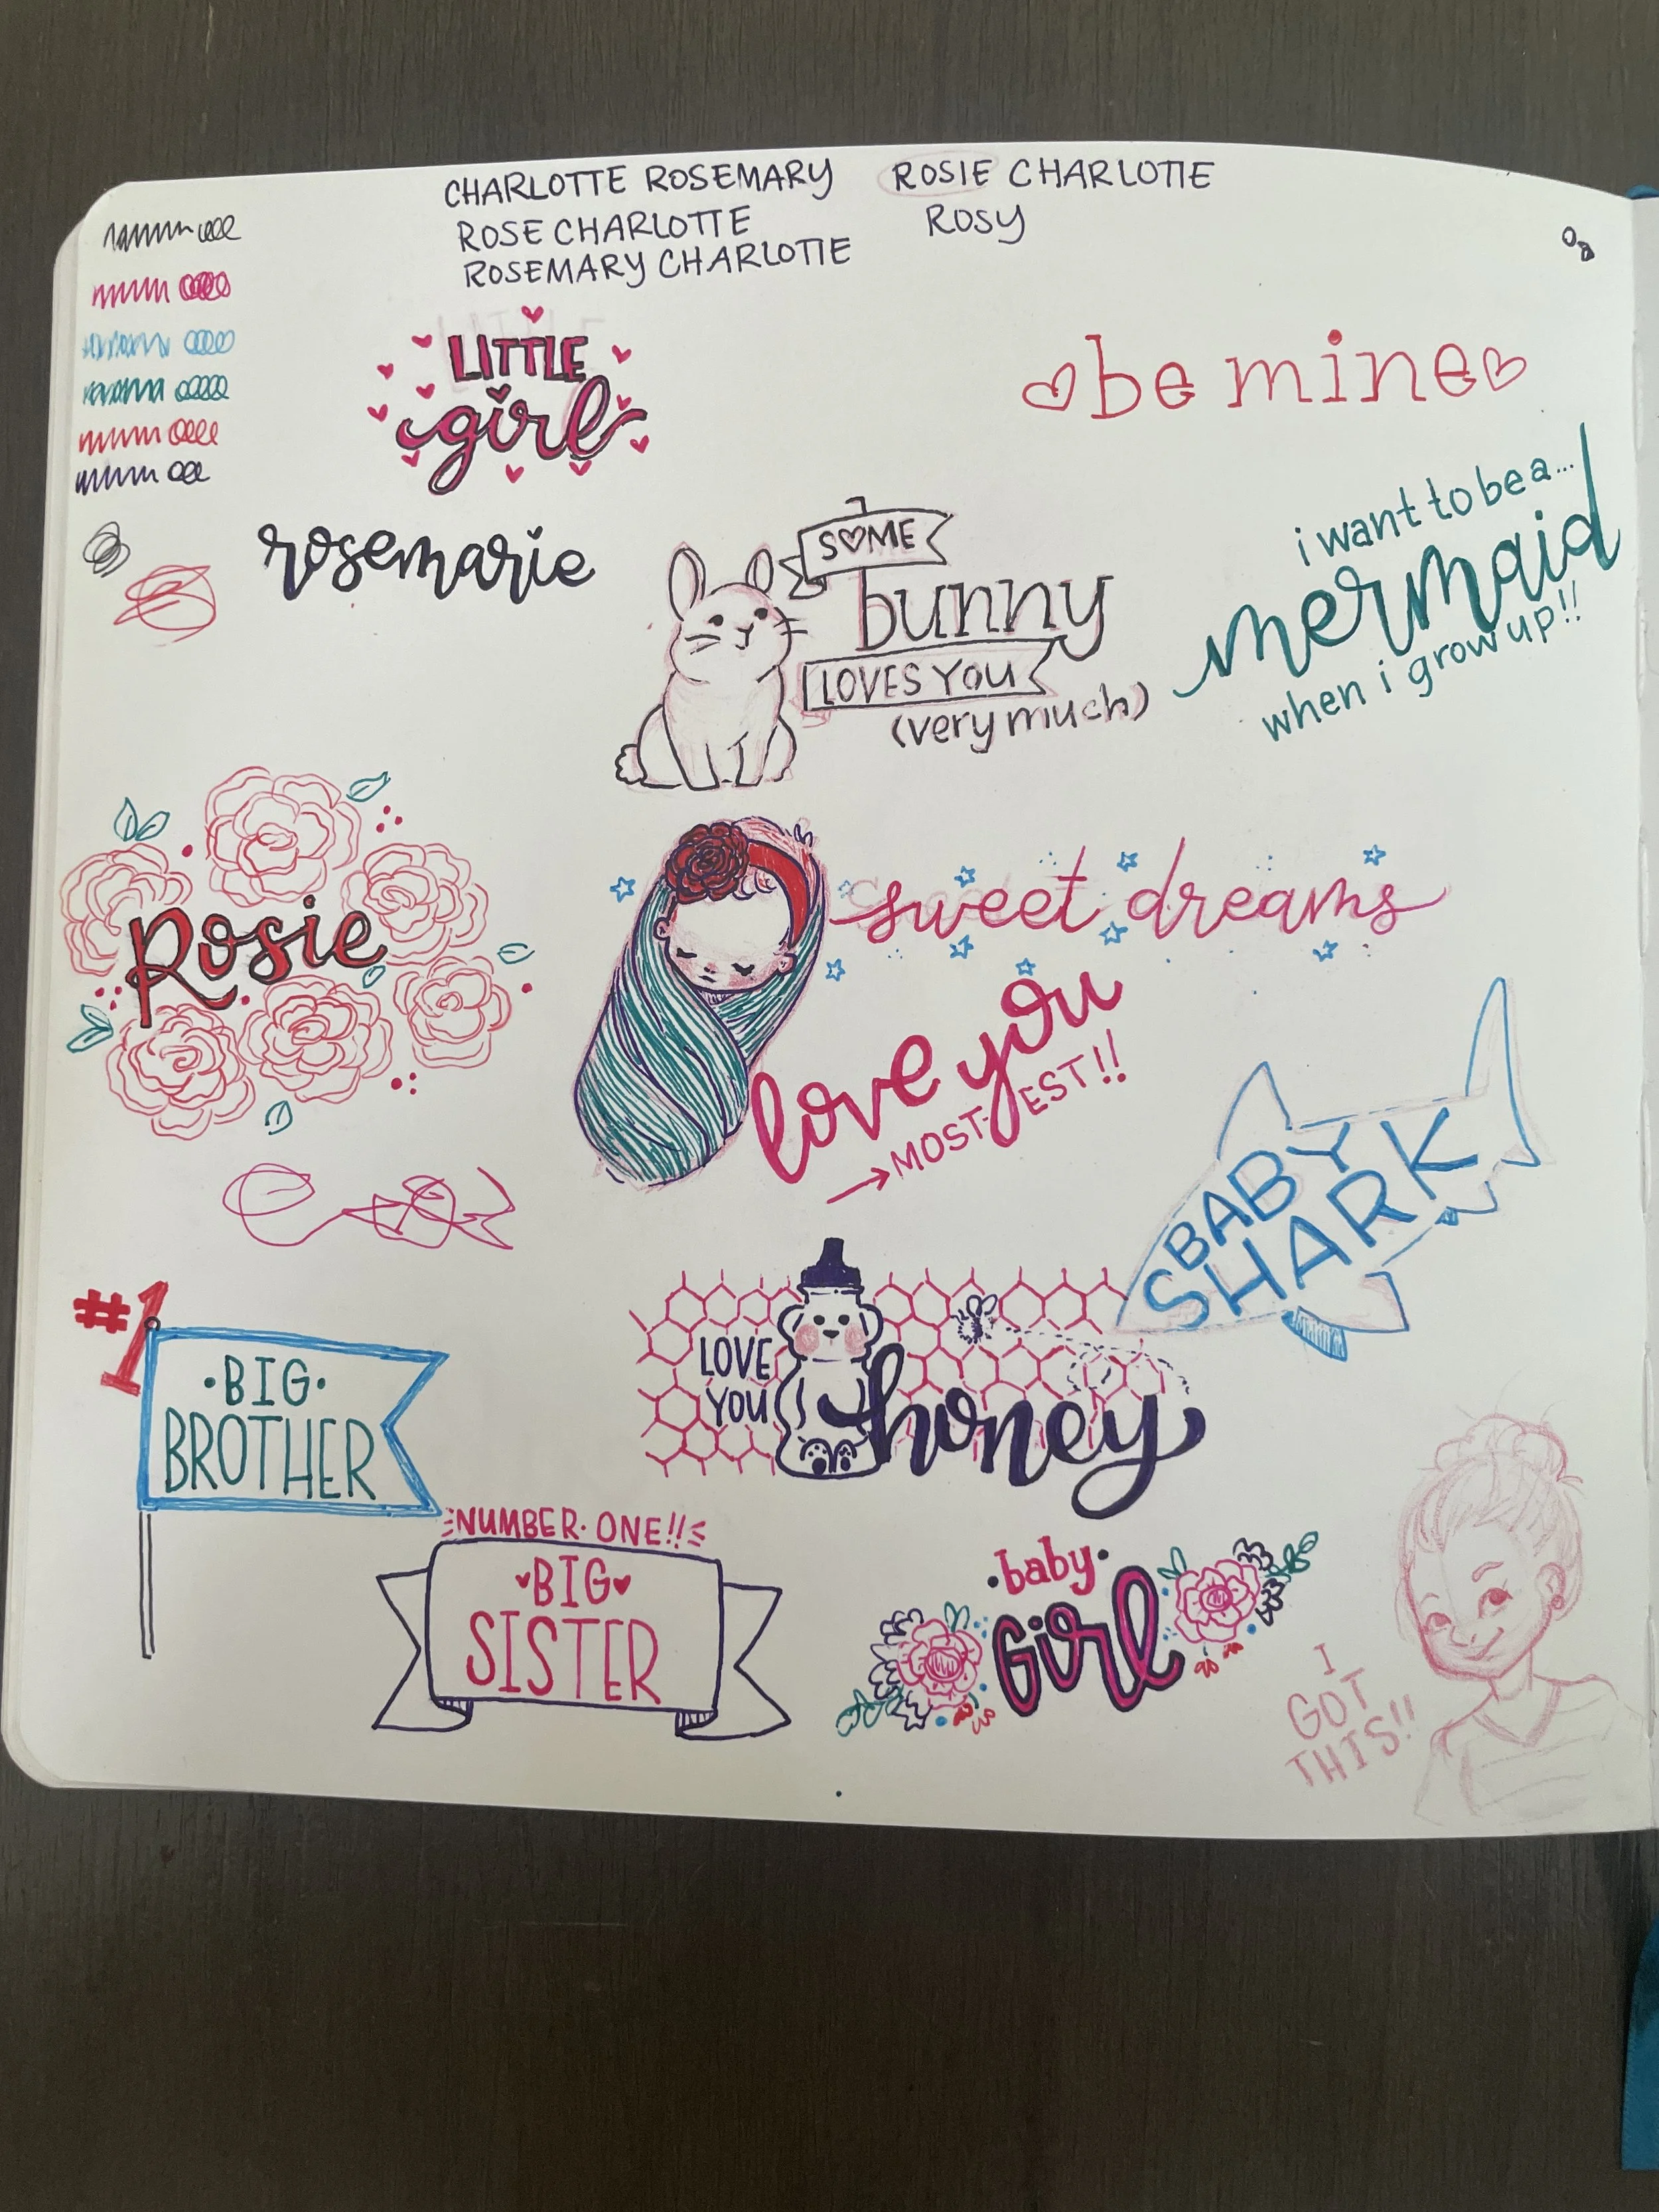 CHARLOTTE ROSEMARY
ROSIE CHARLOTTE
ROSE CHARLOTTE
ROSY
ROSEMARY CHARLOTTE
LITTLE
girl
be mine
rosemarie
SOME
bunny
LOVES YOU
(very much)
i want to be a...
mermaid
when i grow up!!
Rosie
sweet dreams
love you
MOST-EST!!
BABY
SHARK
#1
BIG
BROTHER
LOVE
YOU
honey
NUMBER·ONE!!
BIG
SISTER
baby
Girl
I
GOT
THIS!!